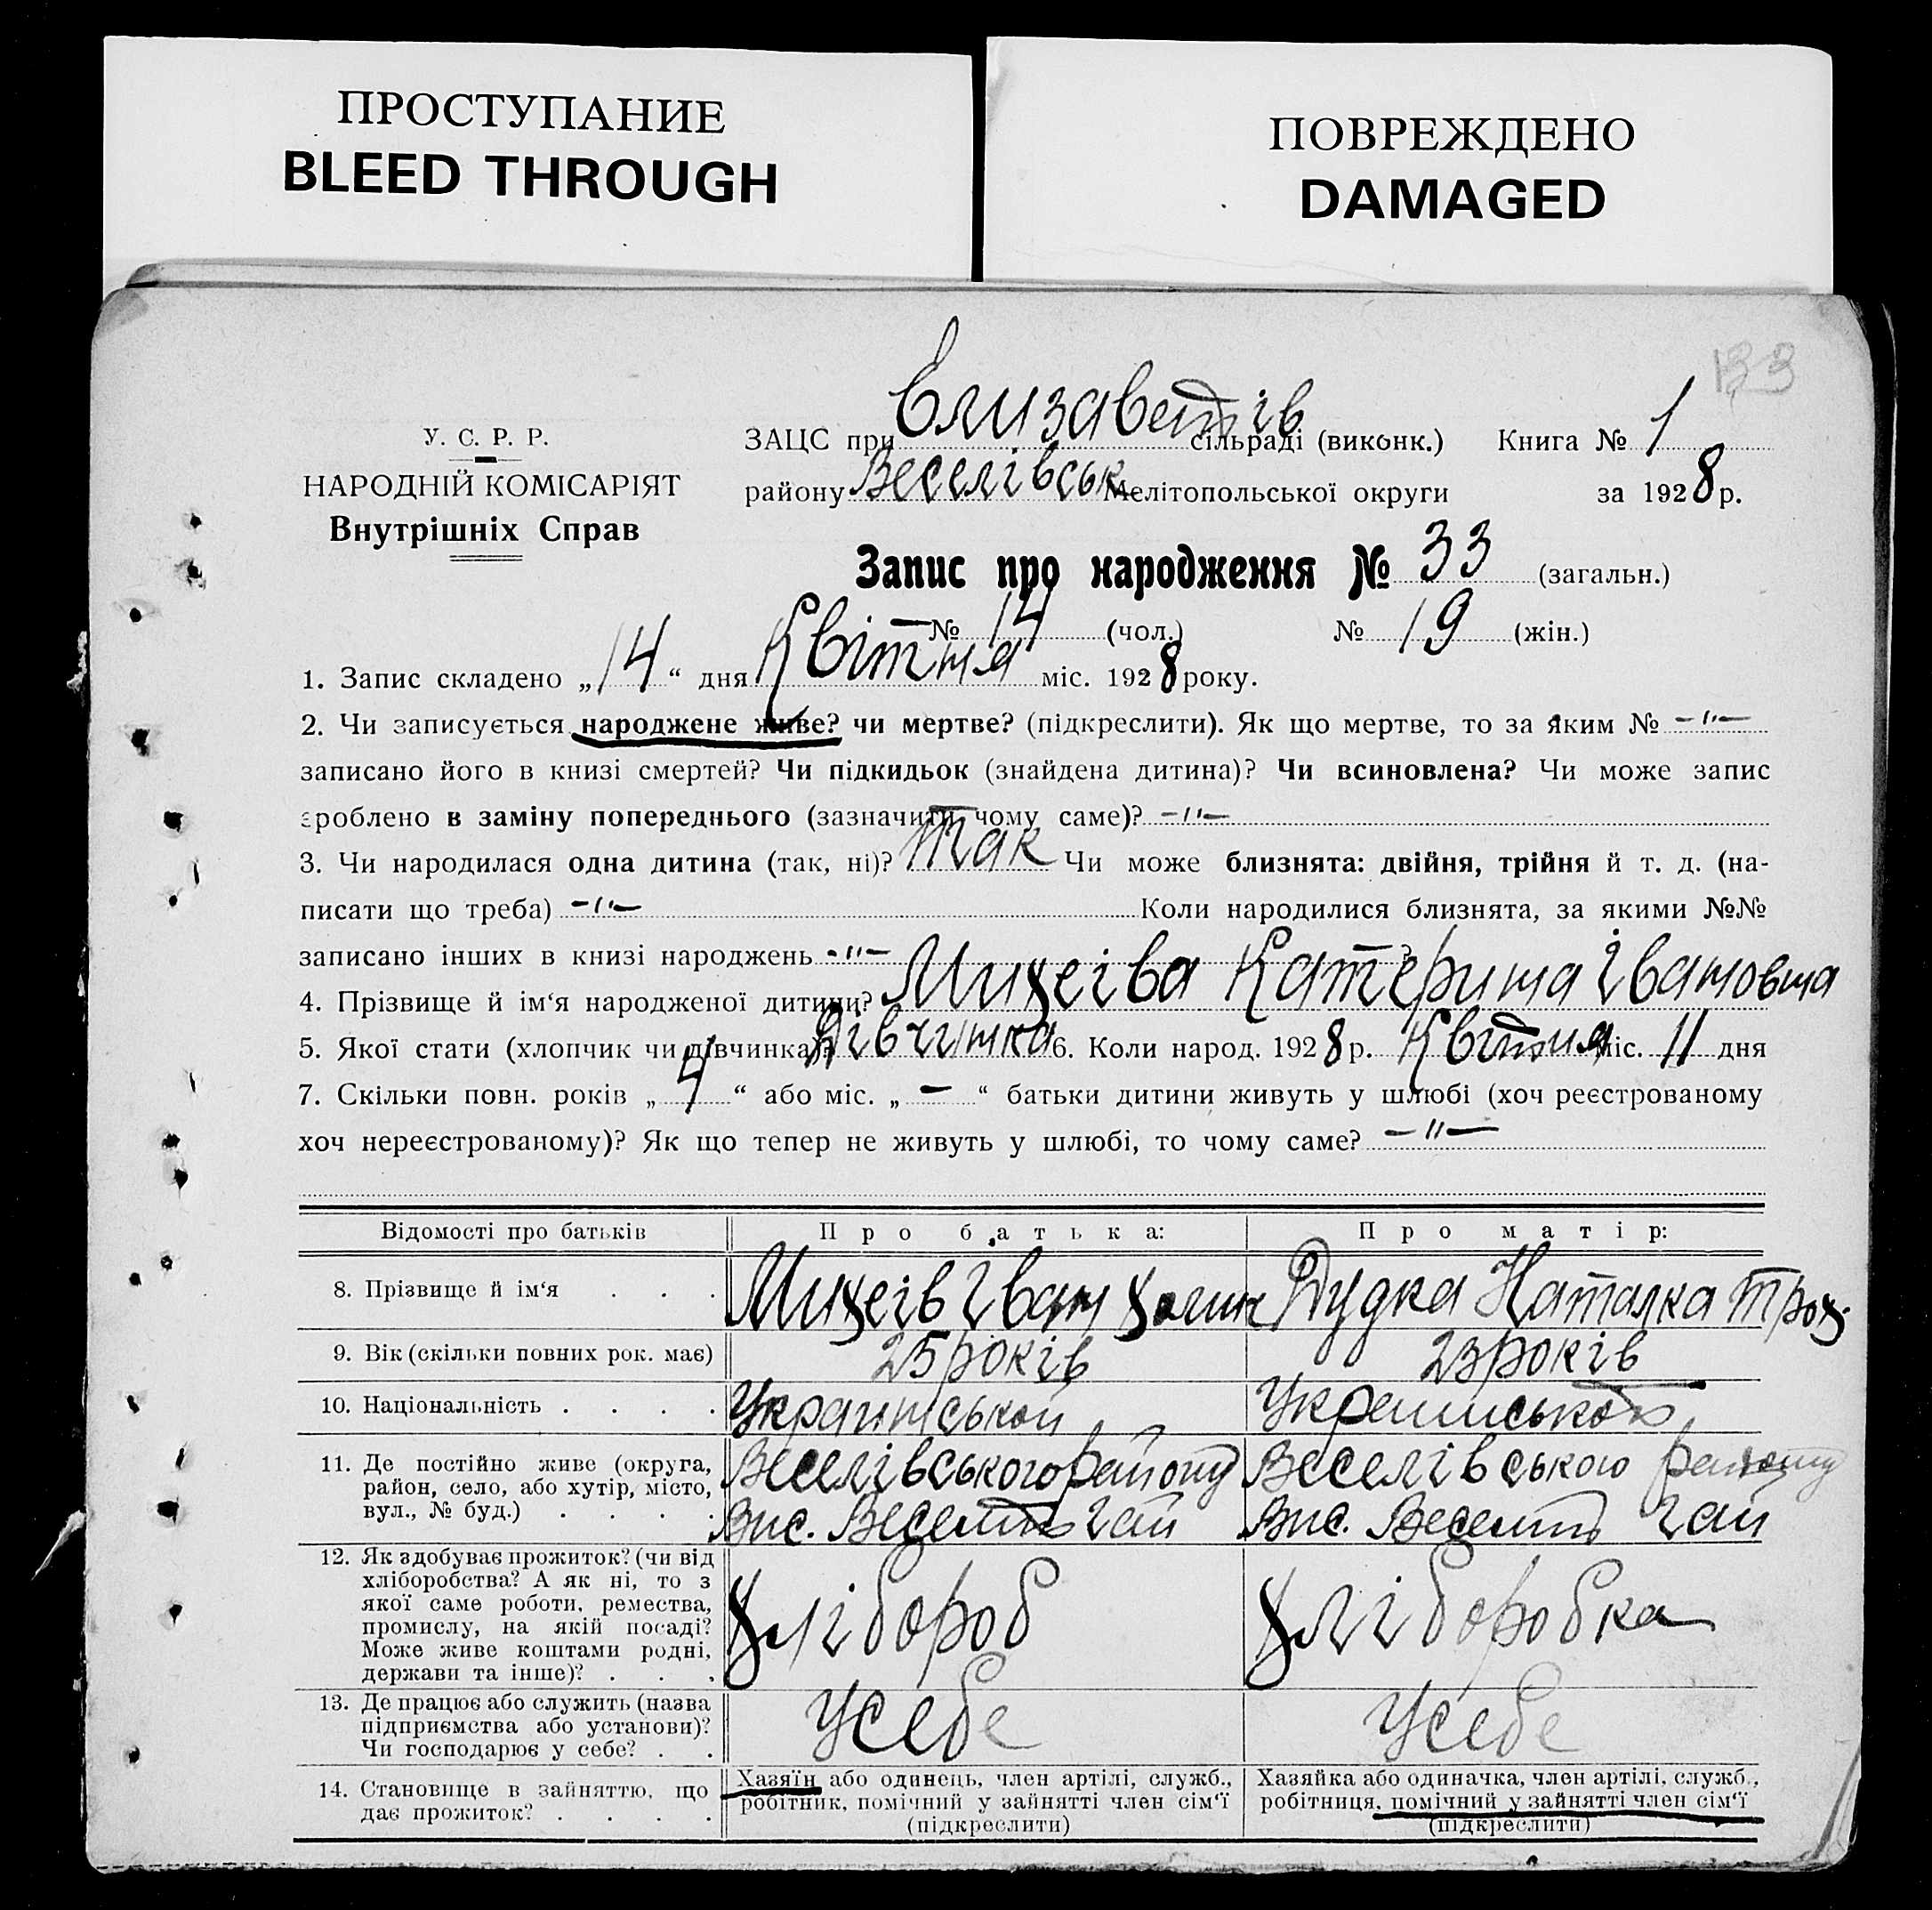 ПРОСТУПАНИЕ
BLEED THROUGH
ПОВРЕЖДЕНО
DAMAGED
133
У. С. Р. Р.
НАРОДНІЙ КОМІСАРІЯТ
Внутрішніх Справ
ЗАЦС при Єлизаветів сільраді (виконк.) Книга № 1
району Веселівськ Мелітопольської округи за 1928 р.
Запис про народження № 33 (загальн.)
№ 14 (чол.) № 19 (жін.)
1. Запис складено „14“ дня Квітня міс. 1928 року.
2. Чи записується народжене живе? чи мертве? (підкреслити). Як що мертве, то за яким № -"-
записано його в книзі смертей? Чи підкидьок (знайдена дитина)? Чи всиновлена? Чи може запис
зроблено в заміну попереднього (зазначити чому саме)? -"-
3. Чи народилася одна дитина (так, ні)? Так Чи може близнята: двійня, трійня й т. д. (на-
писати що треба) -"- Коли народилися близнята, за якими №№
записано інших в книзі народжень -"- ?
4. Прізвище й ім‘я народженої дитини? Михеіва Катерина Івановна
5. Якої статі (хлопчик чи дівчинка)? Дівчинка 6. Коли народ. 1928 р. Квітня міс. 11 дня
7. Скільки повн. років „4“ або міс. „-“ батьки дитини живуть у шлюбі (хоч реєстрованому
хоч нереєстрованому)? Як що тепер не живуть у шлюбі, то чому саме? -"-
Відомості про батьків Про батька: Про матір:
8. Прізвище й ім‘я . . . Михеів Іван Дудка Наталка Трох.
9. Вік (скільки повних рок. має) 25 років 23 років
10. Національність . . . . Украинськой Украинськой
11. Де постійно живе (округа,
район, село, або хутір, місто,
вул., № буд.) . . . .
Веселівського району
Вис. Веселий Гай
Веселівського району
Вис. Веселий Гай
12. Як здобуває прожиток? (чи від
хліборобства? А як ні, то з
якої саме роботи, ремества,
промислу, на якій посаді?
Може живе коштами родні,
держави та інше)? . . .
Хлібороб
Хліборобка
13. Де працює або служить (назва
підприємства або установи)?
Чи господарює у себе? . .
Усебе
Усебе
14. Становище в зайняттю, що
дає прожиток? . . . .
Хазяїн або одинець, член артілі, служб.,
робітник, помічний у зайнятті член сім‘ї
(підкреслити)
Хазяйка або одиначка, член артілі, служб.,
робітниця, помічний у зайнятті член сім‘ї
(підкреслити)